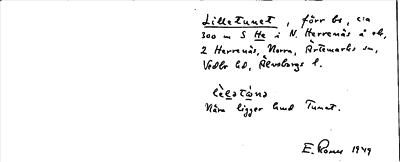 Lilletunet, förr bs, c:a
300 m S He i N. Herrenäs å ek,
2 Herrenäs, Norra, Ärtemarks sn,
Vedbo hd, Älvsborgs l.
Nära ligger hund Tunet.
E. 1949